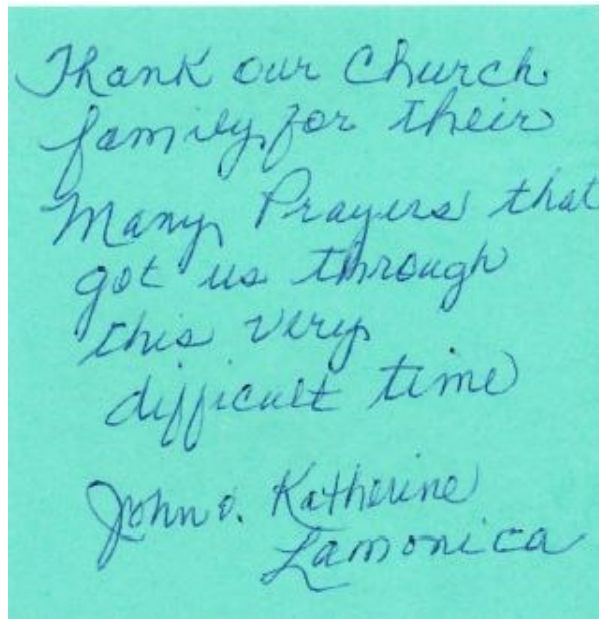 Thank our Church
family for their
Many Prayers that
got us through
this very
difficult time
John & Katherine
Lamonica